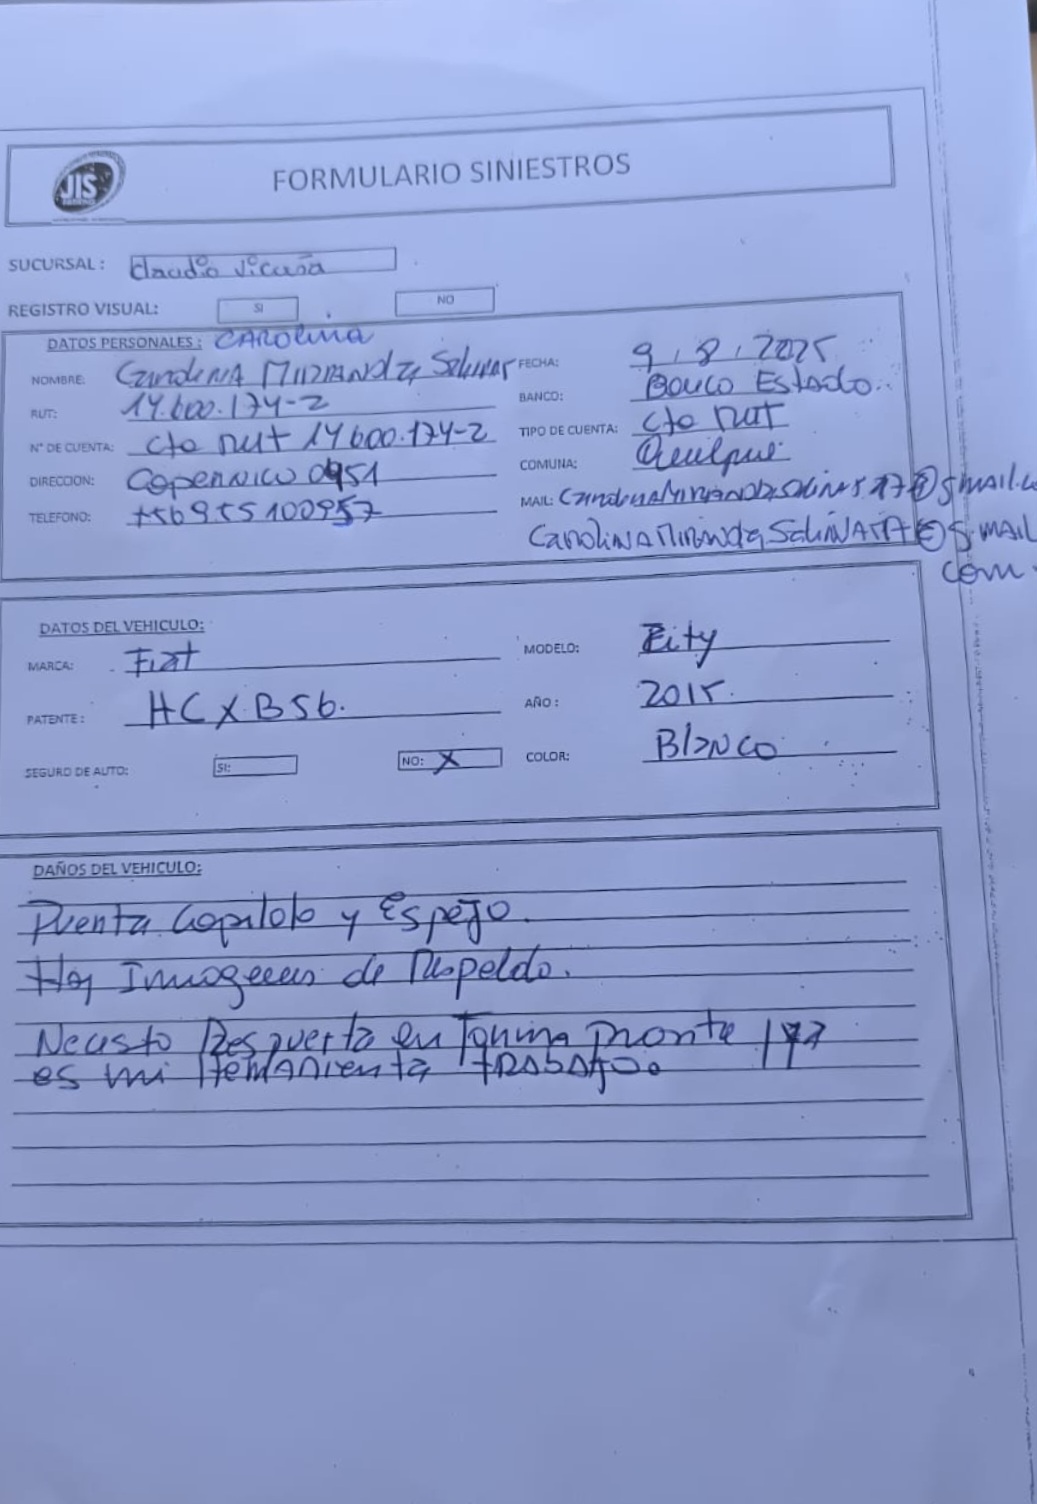 JIS
FORMULARIO SINIESTROS
SUCURSAL: Claudio Vicuña
REGISTRO VISUAL: SI NO
DATOS PERSONALES: CAROLINA
NOMBRE: CAROLINA MIRANDA Salinas FECHA: 9.8.2025
RUT: 14.600.174-2 BANCO: Banco Estado
N° DE CUENTA: cta rut 14600.174-2 TIPO DE CUENTA: cta rut
DIRECCION: Copernico 0951 COMUNA: Quilpue
TELEFONO: +56955100957 MAIL: CarolinaMIRANDASalinas17@gmail.co
CarolinaMirandaSalinas17@gmail
com.
DATOS DEL VEHICULO:
MARCA: Fiat MODELO: City
PATENTE: HCXB56. AÑO: 2015.
SEGURO DE AUTO: SI: NO: X COLOR: Blanco
DAÑOS DEL VEHICULO:
Puerta Copiloto y Espejo.
Hay Imagenes de Respaldo.
Necesito Respuesta en Forma pronta
es mi Herramienta TRABAJO.